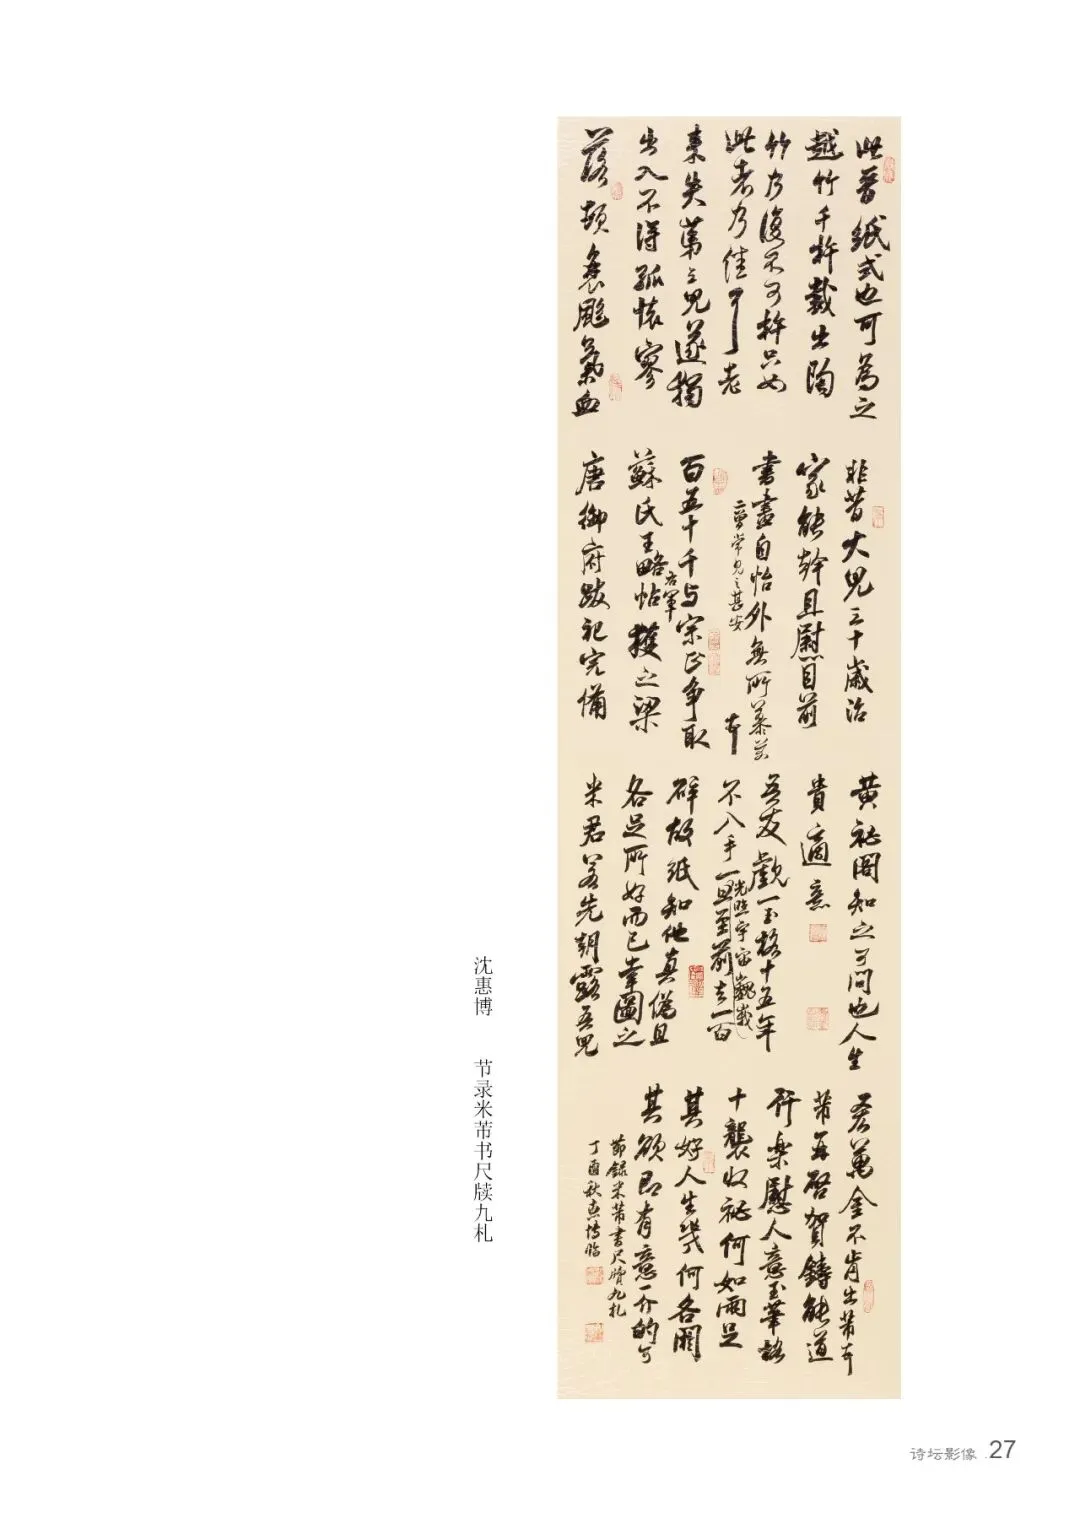 此晋紙式也可為之
越竹千杵裁出陶
竹乃復不可杵只如
此者乃佳耳 老
來失第二兒遂獨
出入不得孤懷寥
落頓衰颯氣血
非昔大兒三十歲治
家能幹且慰目前
書畫自怡外無所慕芾
常見之甚安
百五十千与宗正争取
蘇氏王略帖右軍獲之梁
唐御府跋記完備
黄祕閣知之可問也人生
貴適意
吾友觑一玉格十五年
不入手一旦至前去一百
光照宇宙巍峩
碎故紙知他真偽且
各足所好而已幸圖之
米君若先朝露吾兒
吝萬金不肯出芾
芾再啓賀鑄能道
行樂慰人意玉華格
十襲收祕何如兩足
其好人生幾何各閼
其欲即有意一介的可
節録米芾書尺牘九札
丁酉秋惠博臨
沈惠博 节录米芾书尺牍九札
诗坛影像 27